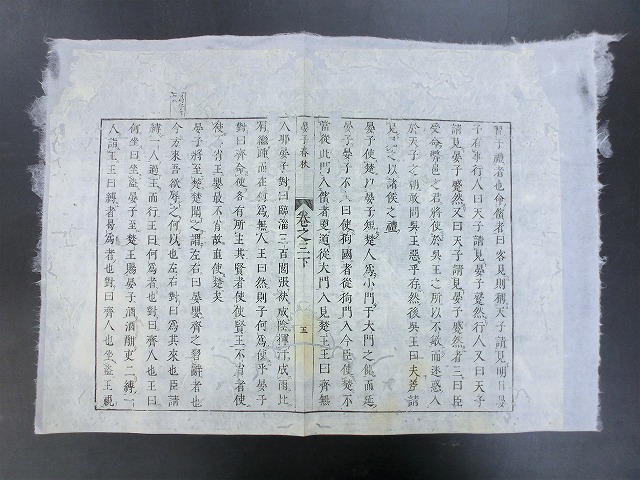 習于禮者也命儐者曰客見則稱天子請見明日晏
子有事行人曰天子請見晏子蹵然行人又曰天子
請見晏子蹵然又曰天子請見晏子蹵然者三曰臣
受命弊邑之君將使於吳王之所以不敏而迷惑入
於天子之朝敢問吳王惡乎存然後吳王曰夫差請
見見之以諸侯之禮
晏子使楚以晏子短楚人為小門于大門之側而延
晏子晏子不入曰使狗國者從狗門入今臣使楚不
當從此門入儐者更道從大門入見楚王王曰齊無
人耶晏子對曰臨淄三百閭張袂成陰揮汗成雨比
晏子春秋 卷之三下 五
肩繼踵而在何為無人王曰然則子何為使乎晏子
對曰齊命使各有所主其賢者使使賢王不肖者使
使不肖王嬰最不肖故直使楚矣
晏子將至楚楚聞之謂左右曰晏嬰齊之習辭者也
今方來吾欲辱之何以也左右對曰為其來也臣請
縛一人過王而行王曰何為者也對曰齊人也王曰
何坐曰坐盜晏子至楚王賜晏子酒酒酣吏二縛一
人詣王王曰縛者曷為者也對曰齊人也坐盜王視